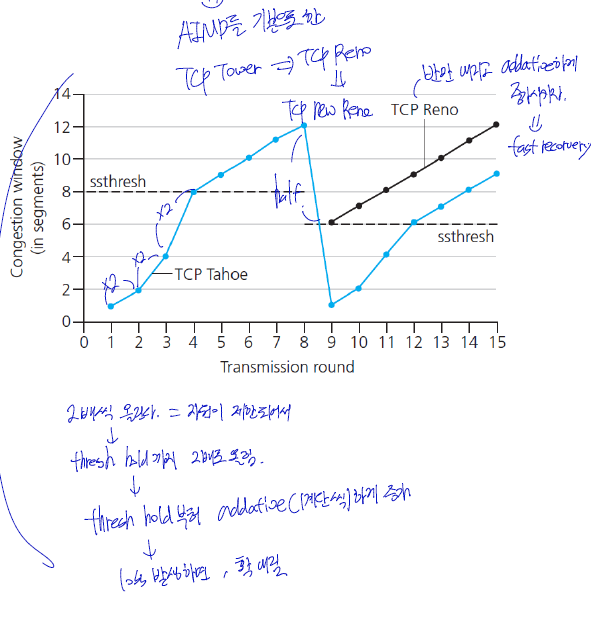 AIMD를 기반으로 한
TCP Tower ⇒ TCP Reno
⇓
TCP New Reno
반만 내리고 addative하게
증가시키자.
⇓
fast recovery
TCP Reno
14
12
10
8
6
4
2
0
Congestion window
(in segments)
ssthresh
ssthresh
half
x2
x2
x2
TCP Tahoe
0 1 2 3 4 5 6 7 8 9 10 11 12 13 14 15
Transmission round
2배씩 올린다. = 자원이 제한되어서
↓
thresh hold까지 2배로 올림.
↓
thresh hold부터 addative(1계단씩)하게 증가
↓
loss 발생하면, 확 내림